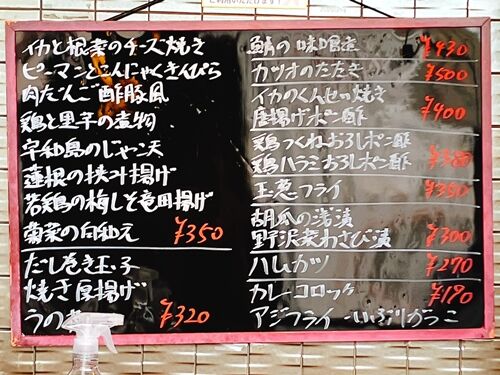 イカと根菜のチーズ焼き
ピーマンとこんにゃくきんぴら
肉だんご酢豚風
鶏と里芋の煮物
宇和島のじゃこ天
蓮根の挟み揚げ
若鶏の梅しそ竜田揚げ
菊菜の白和え ¥350
だし巻き玉子
焼き厚揚げ
うの ¥320
鯖の味噌煮 ¥430
カツオのたたき ¥500
イカのくんせい焼き
唐揚げポン酢 ¥400
鶏つくねおろしポン酢
鶏ハラミおろしポン酢 ¥380
玉葱フライ ¥350
胡瓜の浅漬
野沢菜わさび漬 ¥300
ハムカツ ¥270
カレーコロッケ ¥190
アジフライ いぶりがっこ